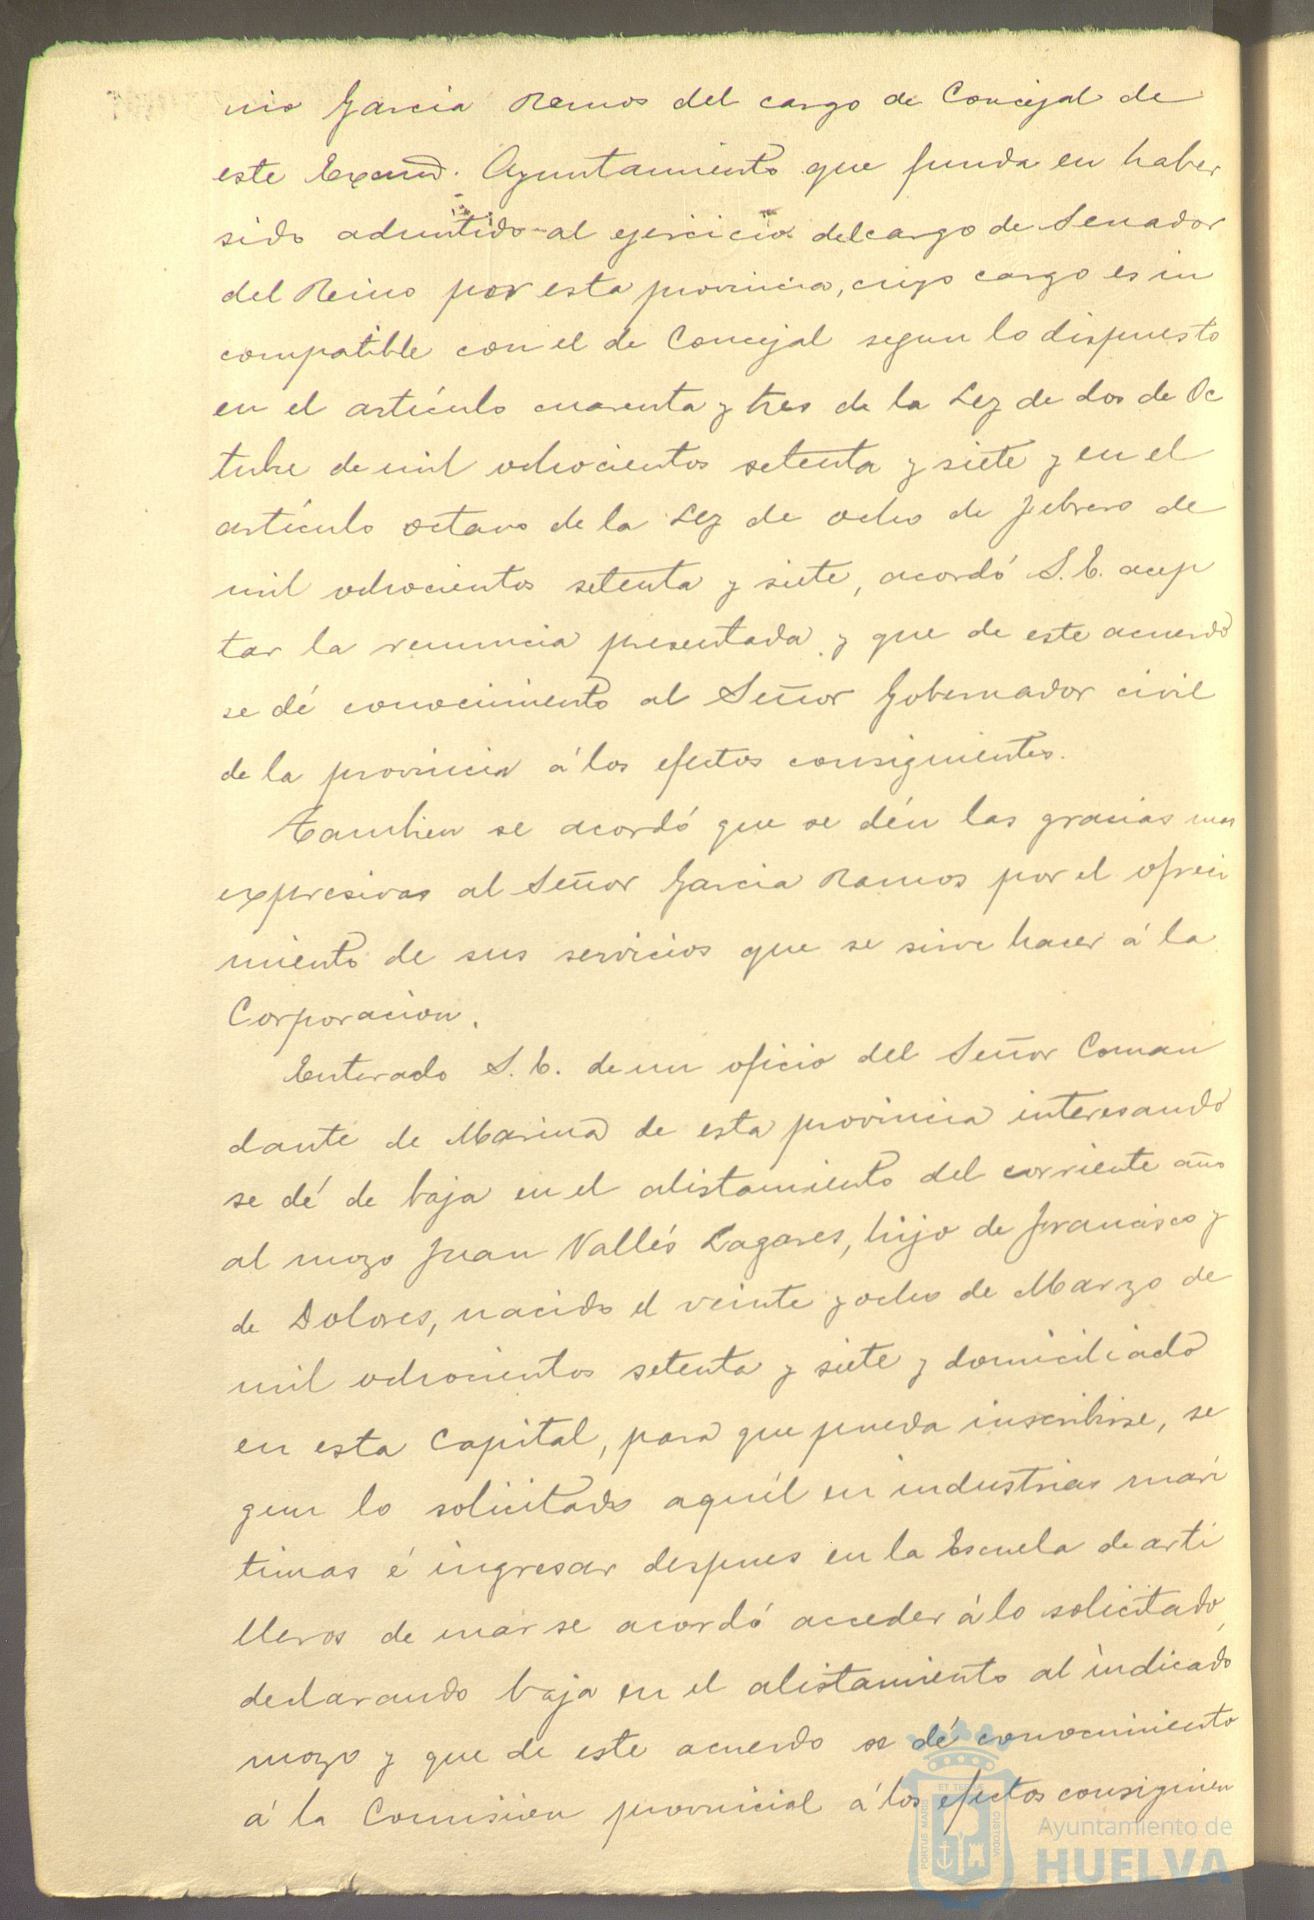 nio Garcia Ramos del cargo de Concejal de
este Excmo. Ayuntamiento que funda en haber
sido admitido al ejercicio del cargo de Senador
del Reino por esta provincia, cuyo cargo es in
compatible con el de Concejal segun lo dispuesto
en el artículo cuarenta y tres de la Ley de dos de Oc
tubre de mil ochocientos setenta y siete y en el
artículo octavo de la Ley de ocho de febrero de
mil ochocientos setenta y siete, acordó S.E. acep
tar la renuncia presentada y que de este acuerdo
se dé conocimiento al Señor Gobernador civil
de la provincia á los efectos consiguientes.
Tambien se acordó que se dén las gracias mas
expresivas al Señor Garcia Ramos por el ofreci
miento de sus servicios que se sirve hacer á la
Corporacion.
Enterado S.E. de un oficio del Señor Coman
dante de Marina de esta provincia interesando
se dé de baja en el alistamiento del corriente año
al mozo Juan Vallés Lagares, hijo de Francisco y
de Dolores, nacido el veinte y ocho de Marzo de
mil ochocientos setenta y siete y domiciliado
en esta Capital, para que pueda inscribirse, se
gun lo solicitado aquél en industrias mari
timas é ingresar despues en la Escuela de arti
lleros de mar se acordó acceder á lo solicitado,
declarando baja en el alistamiento al indicado
mozo y que de este acuerdo se dé conocimiento
á la Comision provincial á los efectos consiguien
PORTUS MARIS ET TERRAE CUSTODIA
Ayuntamiento de
HUELVA